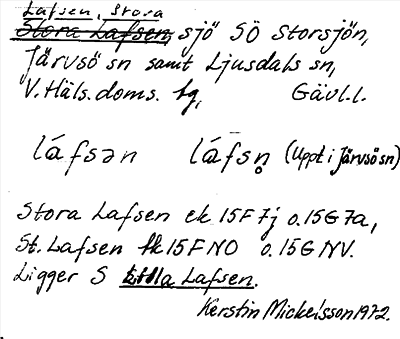 Lafsen, Stora
Stora Lafsen, sjö SÖ Storsjön,
Järvsö sn samt Ljusdals sn,
V. Häls. doms. tg, Gävl. l.
láfsən láfsn̥ (Uppt. i Järvsö sn)
Stora Lafsen ek 15F7j o. 15G7a,
St. Lafsen tk 15F NO o. 15G NV.
Ligger S Lilla Lafsen.
Kerstin Mickelsson 1972.